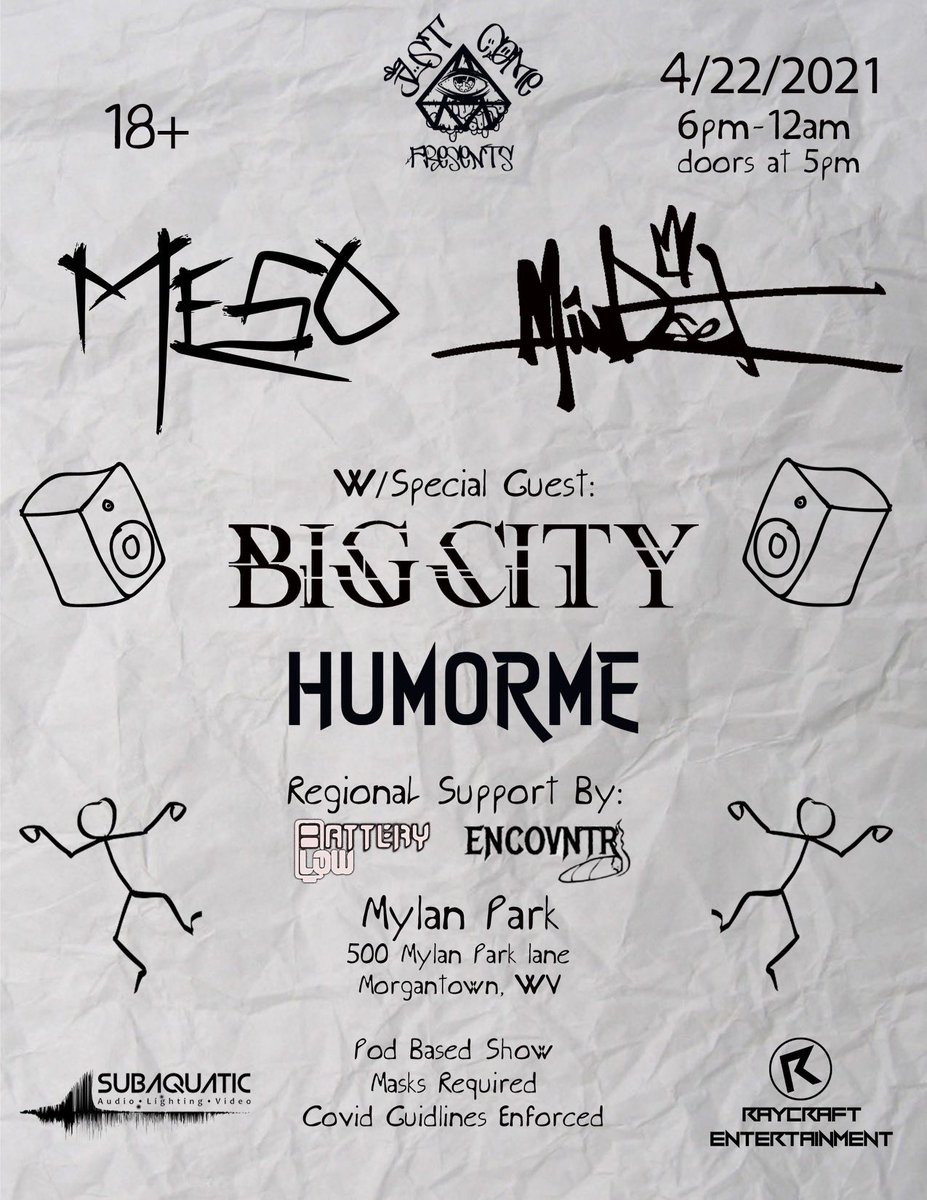 JUST COME
PRESENTS
18+
4/22/2021
6pm-12am
doors at 5pm
MESO
MINDSET
W/Special Guest:
BIG CITY
HUMORME
Regional Support By:
BATTERY LOW
ENCOVNTR
Mylan Park
500 Mylan Park lane
Morgantown, WV
Pod Based Show
Masks Required
Covid Guidlines Enforced
SUBAQUATIC
Audio • Lighting • Video
RAYCRAFT
ENTERTAINMENT